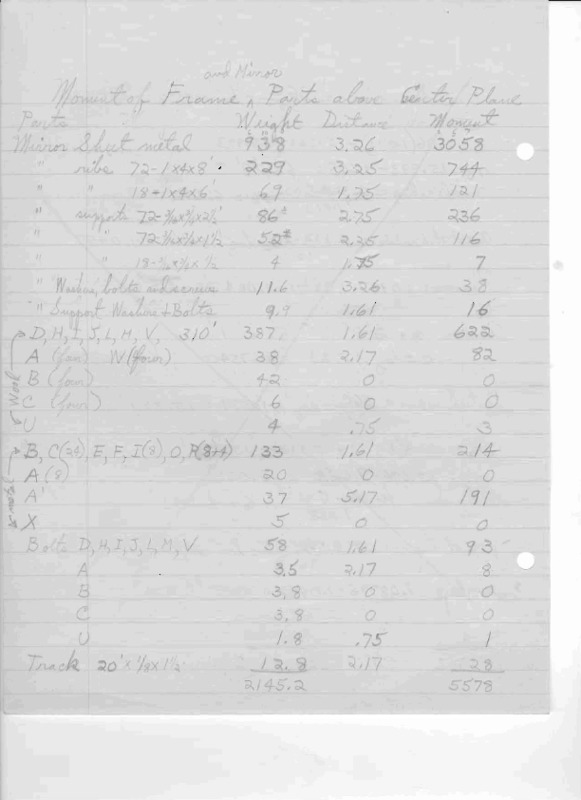 and Mirror
Moment of Frame ^ Parts above Center Plane
Parts Weight Distance Moment
Mirror Sheet metal 938 3.26 3058
" ribs 72-1x4x8' 229 3.25 744
" " 18-1x4x6' 69 1.75 121
" supports 72- 86 2.75 236
" " 72 52 2.25 116
" " 18- 4 1.75 7
" Washers, bolts and screws 11.6 3.26 38
" Support Washers & Bolts 9.9 1.61 16
D, H, I, J, L, M, V, 310' 387 1.61 622
A (four) W (four) 38 2.17 82
B (four) 42 0 0
C (four) 6 0 0
U 4 .75 3
Wood
B, C(24), E, F, I(8), O, R(8+4) 133 1.61 214
A (8) 20 0 0
A' 37 5.17 191
X 5 0 0
metal
Bolts D, H, I, J, L, M, V 58 1.61 93
A 3.5 2.17 8
B 3.8 0 0
C 3.8 0 0
U 1.8 .75 1
Track 20' x 1/8 x 1 1/2 12.8 2.17 28
2145.2 5578